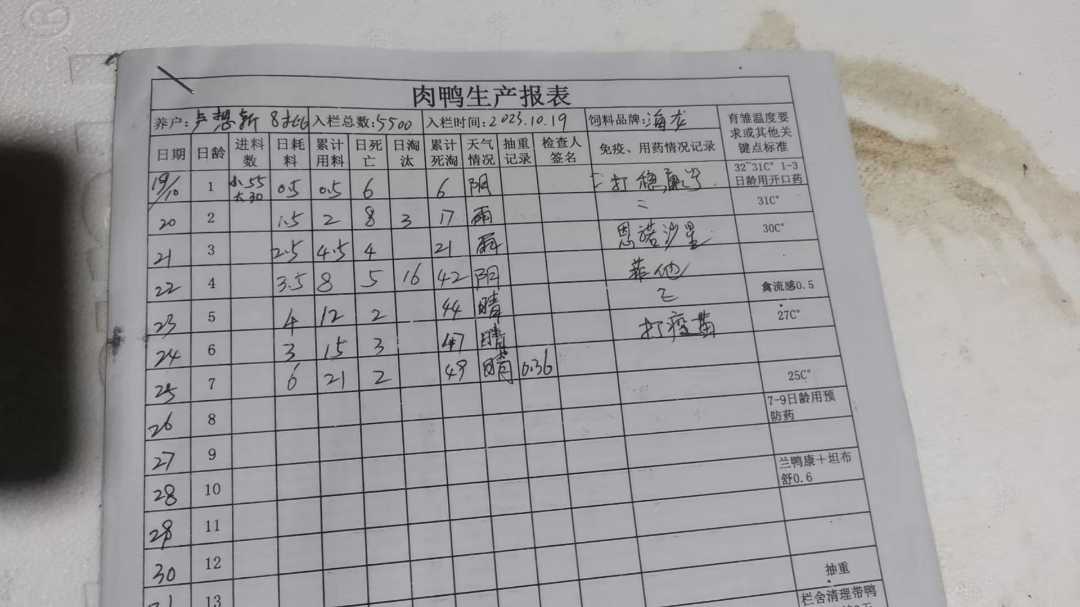 肉鸭生产报表
养户: 卢想新 8批 入栏总数: 5500 入栏时间: 2023.10.19 饲料品牌: 海龙 育雏温度要求或其他关键点标准
日期 日龄 进料数 日耗料 累计用料 日死亡 日淘汰 累计死淘 天气情况 抽重记录 检查人签名 免疫、用药情况记录
19/10 1 小55 大30 0.5 0.5 6 6 阴 32~31C° 1-3日龄用开口药
20 2 1.5 2 8 3 17 雨 31C°
21 3 2.5 4.5 4 21 雨 恩诺沙星 30C°
22 4 3.5 8 5 16 42 阴
23 5 4 12 2 44 晴 禽流感0.5
24 6 3 15 3 47 晴 打疫苗 27C°
25 7 6 21 2 49 晴 0.36
26 8 25C°
7-9日龄用预防药
27 9
28 10 兰鸭康+坦布舒0.6
29 11
30 12 抽重
31 13 栏舍清理带鸭